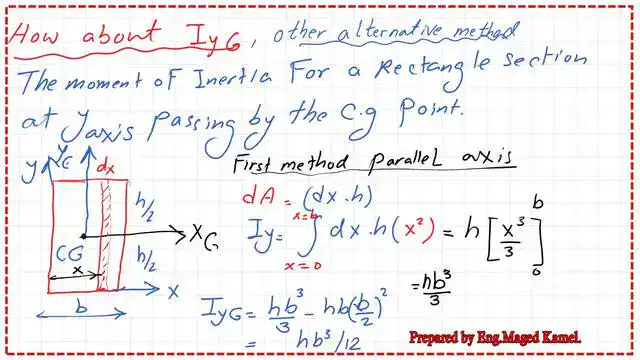 How about IyG, other alternative method
The moment of Inertia For a Rectangle section
at yaxis passing by the C.g Point.
First method parallel axis
y
yG
dx
h/2
XG
CG
h/2
x
x
b
dA = (dx.h)
Iy = ∫ x=0 x=b dx.h (x²) = h [x³/3] 0 b
= hb³/3
IyG = hb³/3 - hb(b/2)²
= hb³/12
Prepared by Eng.Maged Kamel.